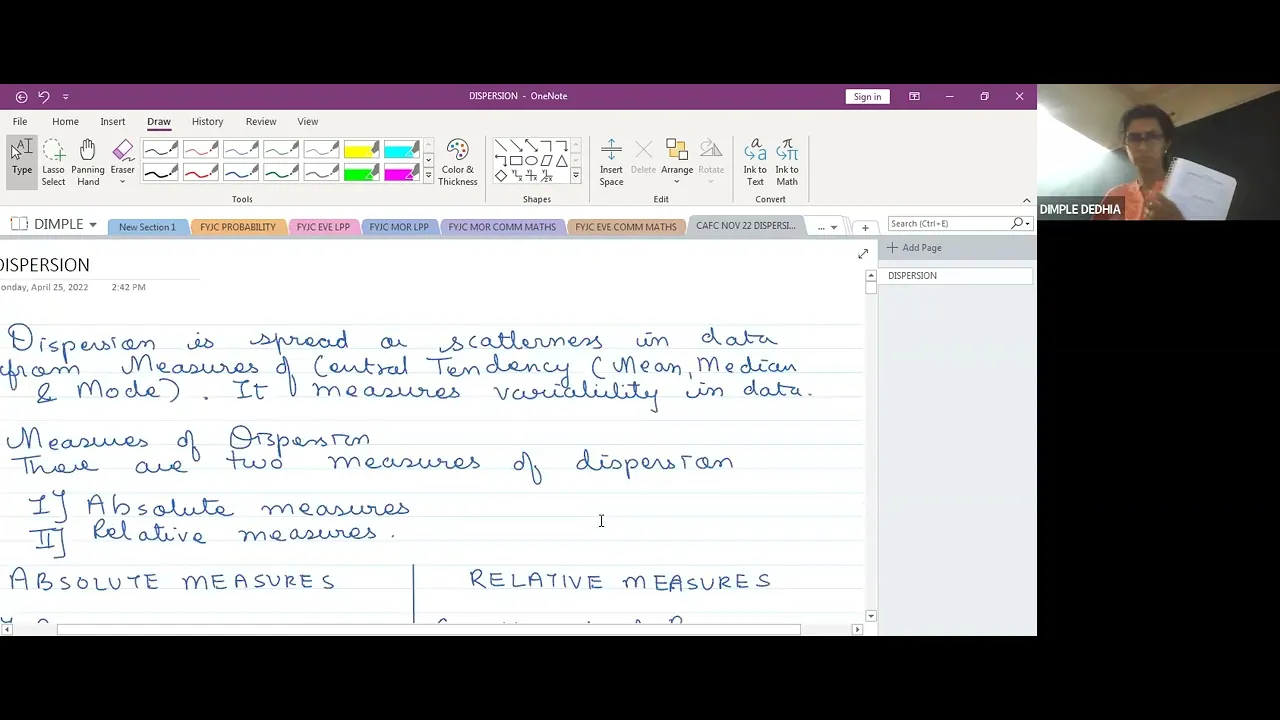 DISPERSION - OneNote
Sign in
File Home Insert Draw History Review View
Type
Lasso Select
Panning Hand
Eraser
Color & Thickness
Insert Space
Delete
Arrange
Rotate
Ink to Text
Ink to Math
Tools
Shapes
Edit
Convert
DIMPLE
New Section 1
FYJC PROBABILITY
FYJC EVE LPP
FYJC MOR LPP
FYJC MOR COMM MATHS
FYJC EVE COMM MATHS
CAFC NOV 22 DISPERSI...
...
Search (Ctrl+E)
Add Page
DISPERSION
DIMPLE DEDHIA
DISPERSION
onday, April 25, 2022 2:42 PM
Dispersion is spread or scatterness in data
from Measures of Central Tendency (Mean, Median
& Mode). It measures variability in data.
Measures of Dispersion
There are two measures of dispersion
I] Absolute measures
II] Relative measures.
ABSOLUTE MEASURES
RELATIVE MEASURES